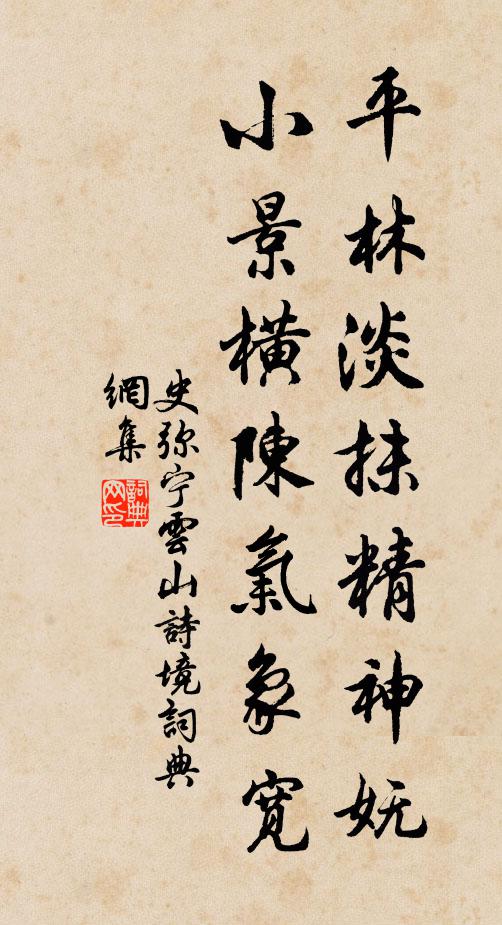 平林淡抹精神妩
小景橫陳氣象寬
史弥宁雲山詩境詞典
網集
詞典
网印